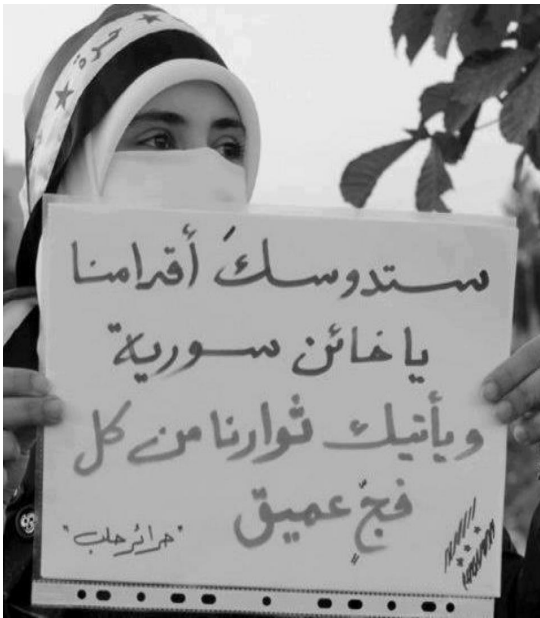 حرة
ستدوسكَ أقدامنا
يا خائن سورية
ويأتيك ثوارنا من كل
فجٍّ عميق
"حرائر حلب"